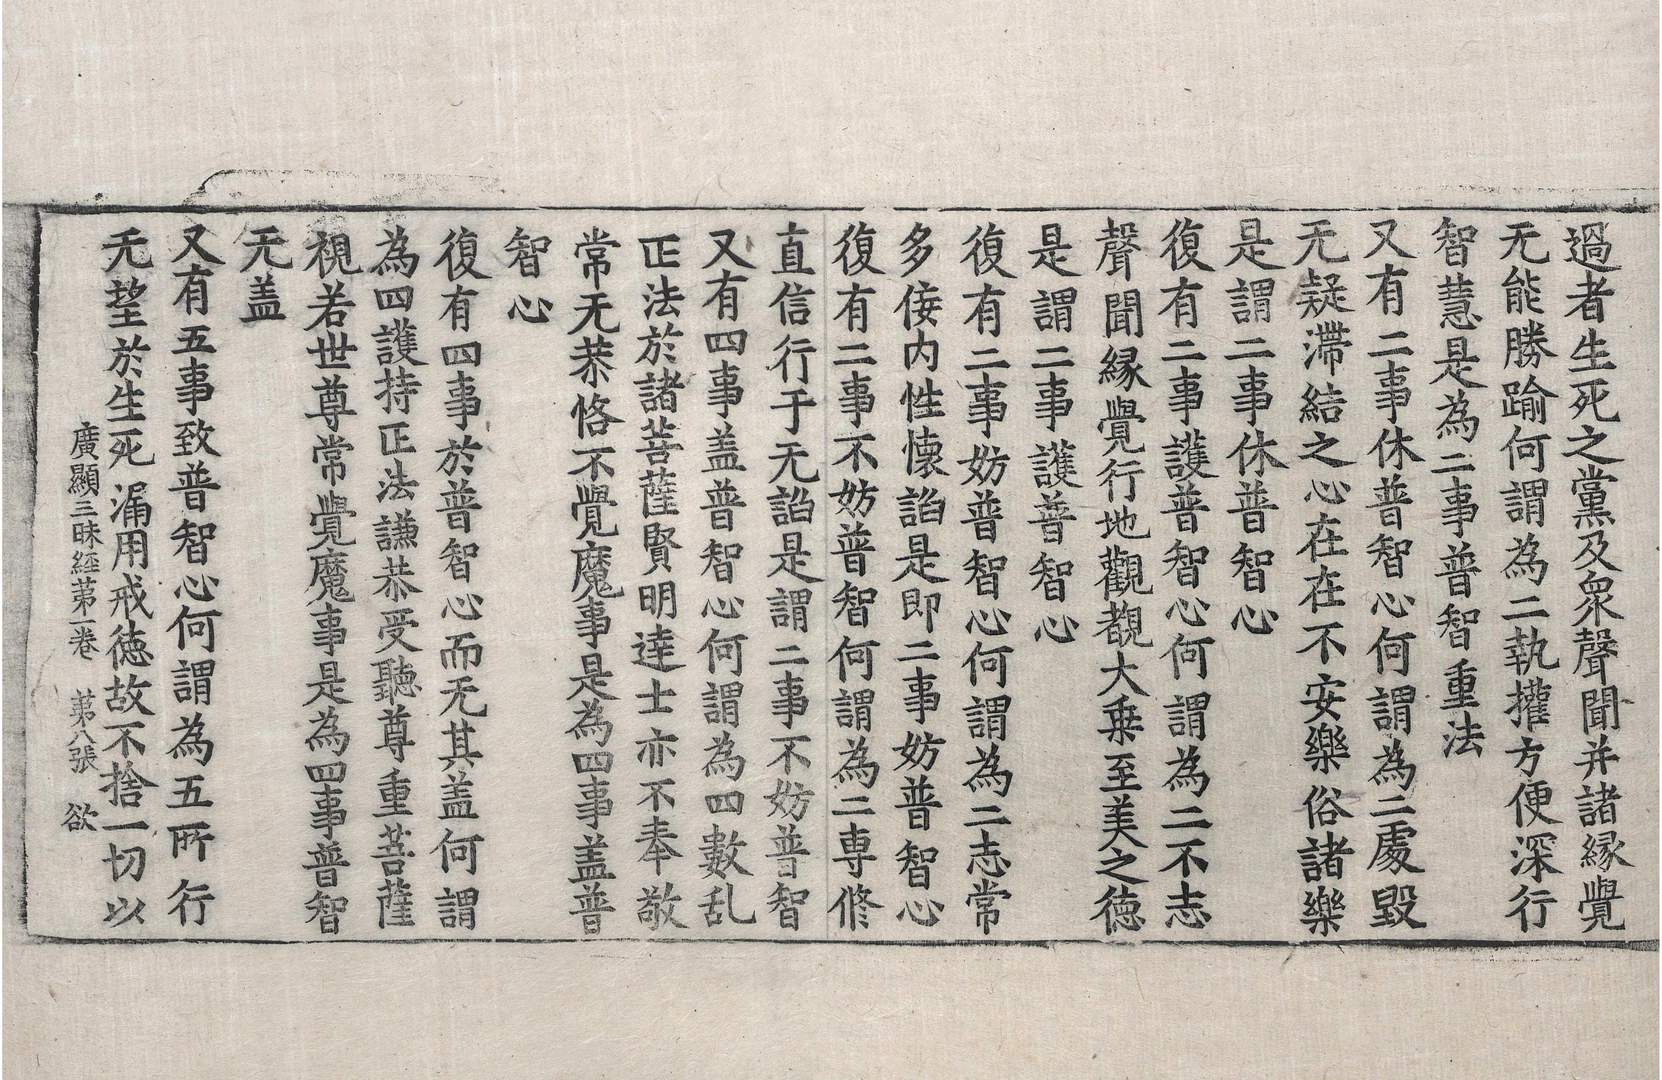 過者生死之黨及衆聲聞并諸縁覺
无能勝踰何謂為二執攉方便深行
智慧是為二事普智重法
又有二事休普智心何謂為二處毀
无疑滯結之心在在不安樂俗諸樂
是謂二事休普智心
復有二事護普智心何謂為二不志
聲聞縁覺行地觀覩大乗至美之德
是謂二事護普智心
復有二事妨普智心何謂為二志常
多侫内性懷諂是即二事妨普智心
復有二事不妨普智何謂為二専修
直信行于无諂是謂二事不妨普智
又有四事盖普智心何謂為四數乱
正法於諸菩薩賢明達士亦不奉敬
常无恭恪不覺魔事是為四事盖普
智心
復有四事於普智心而无其盖何謂
為四護持正法謙恭受聽尊重菩薩
視若世尊常覺魔事是為四事普智
无盖
又有五事致普智心何謂為五所行
无望於生死漏用戒徳故不捨一切以
廣顯三昧経苐一卷　苐八張　欲